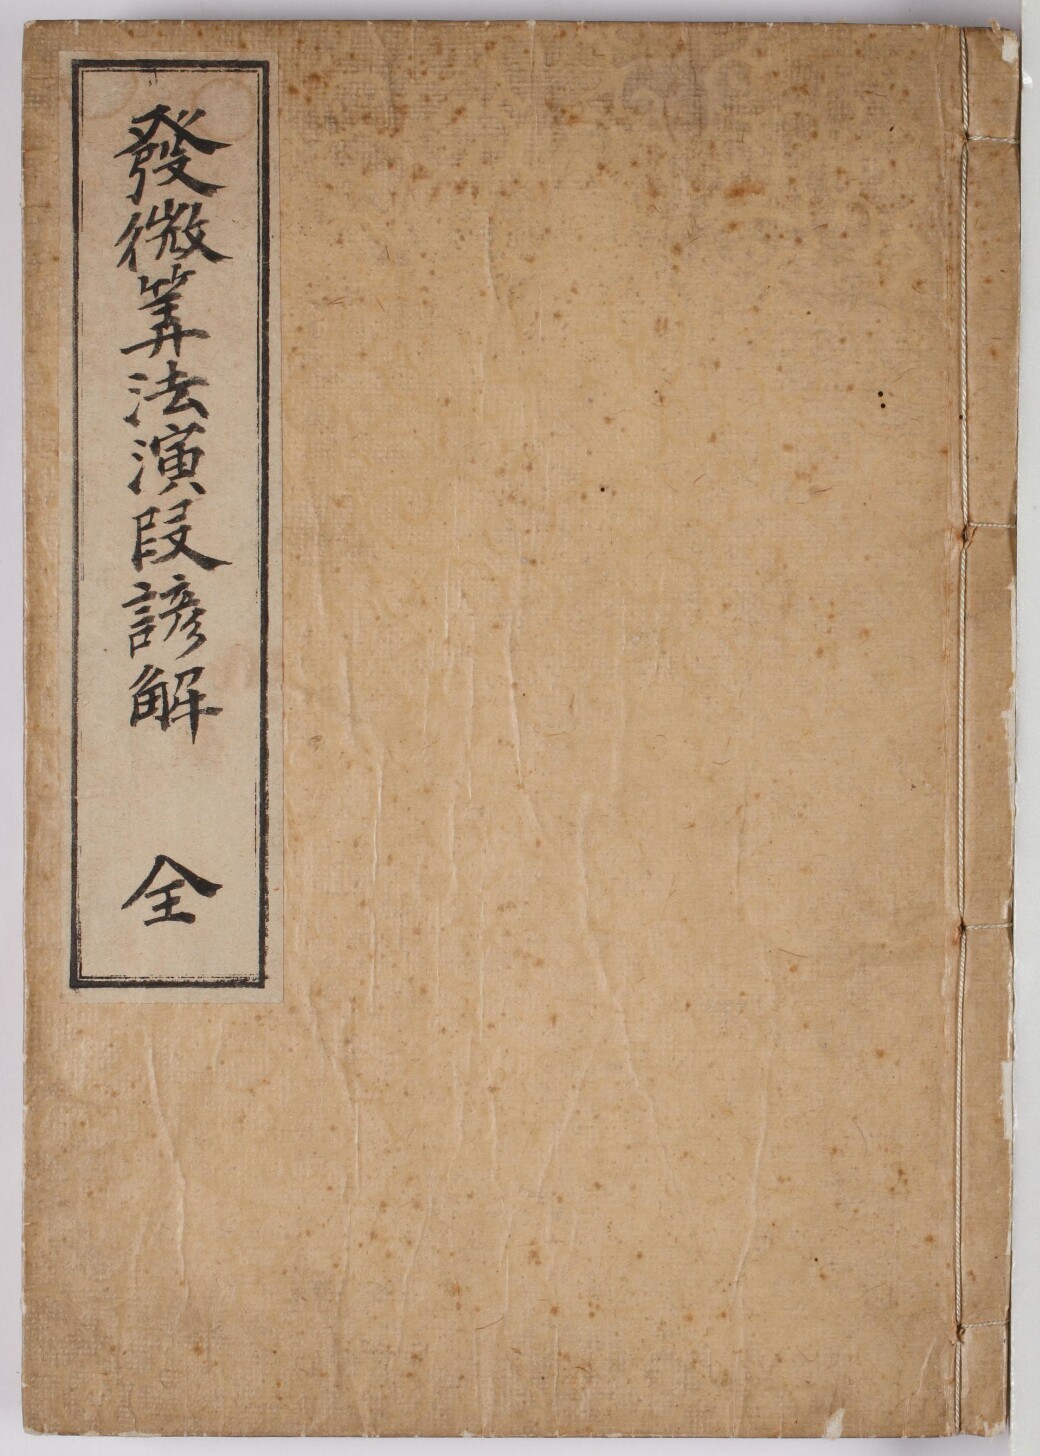 發微筭法演段諺解 全